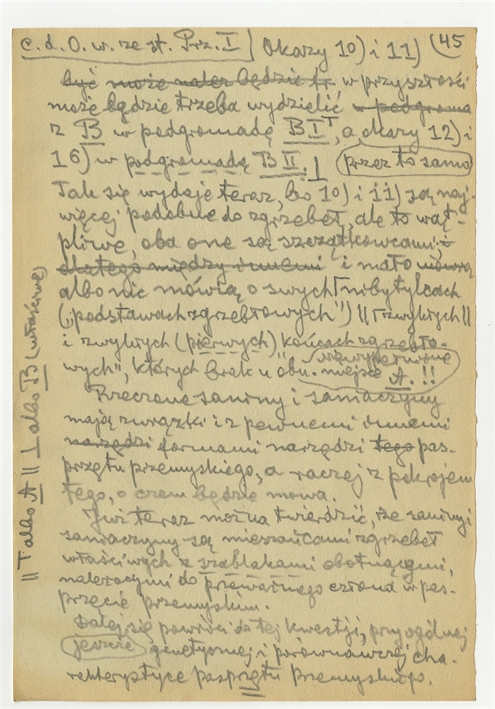 c.d. O. w. ze st. Prz. I Okazy 10) i 11) (45
być może należ będzie tr. w przyszłości
może będzie trzeba wydzielić w podgroma
z B w podgromadę B I, a okazy 12) i
16) w podgromadę B II. (przez to samo)
Tak się wydaje teraz, bo 10) i 11) są naj-
więcej podobne do zgrzebeł, ale to wąt-
pliwe, oba one są szczątkowcami,
dlatego między innemi i mało
albo nic mówią o swych nibytylcach
("podstawach zgrzebłowych") || zwykłych ||
i zwykłych (pierwych) końcach zgrzebło-
wych", których brak u obu. miejsce A. !!
Rzeczone saniny i saniaczyny
mają związki i z pewnemi innemi
narzędzi formami narzędzi tego pas-
przętu przemyskiego, a raczej z pokrojem
tego, o czem będzie mowa.
Już teraz można twierdzić, że saniny i
saniaczyny są mieszańcami zgrzebeł
właściwych z szablakami obołującymi,
należącymi do przeważnego członu w pas-
przęcie przemyskim.
Dalej się powróci do tej kwestji, przy ogólnej
(jeszcze) genetycznej i porównawczej cha-
rakterystyce pasprzętu Przemyskiego.
|| T albo A || ⊥ albo B (właściwej)